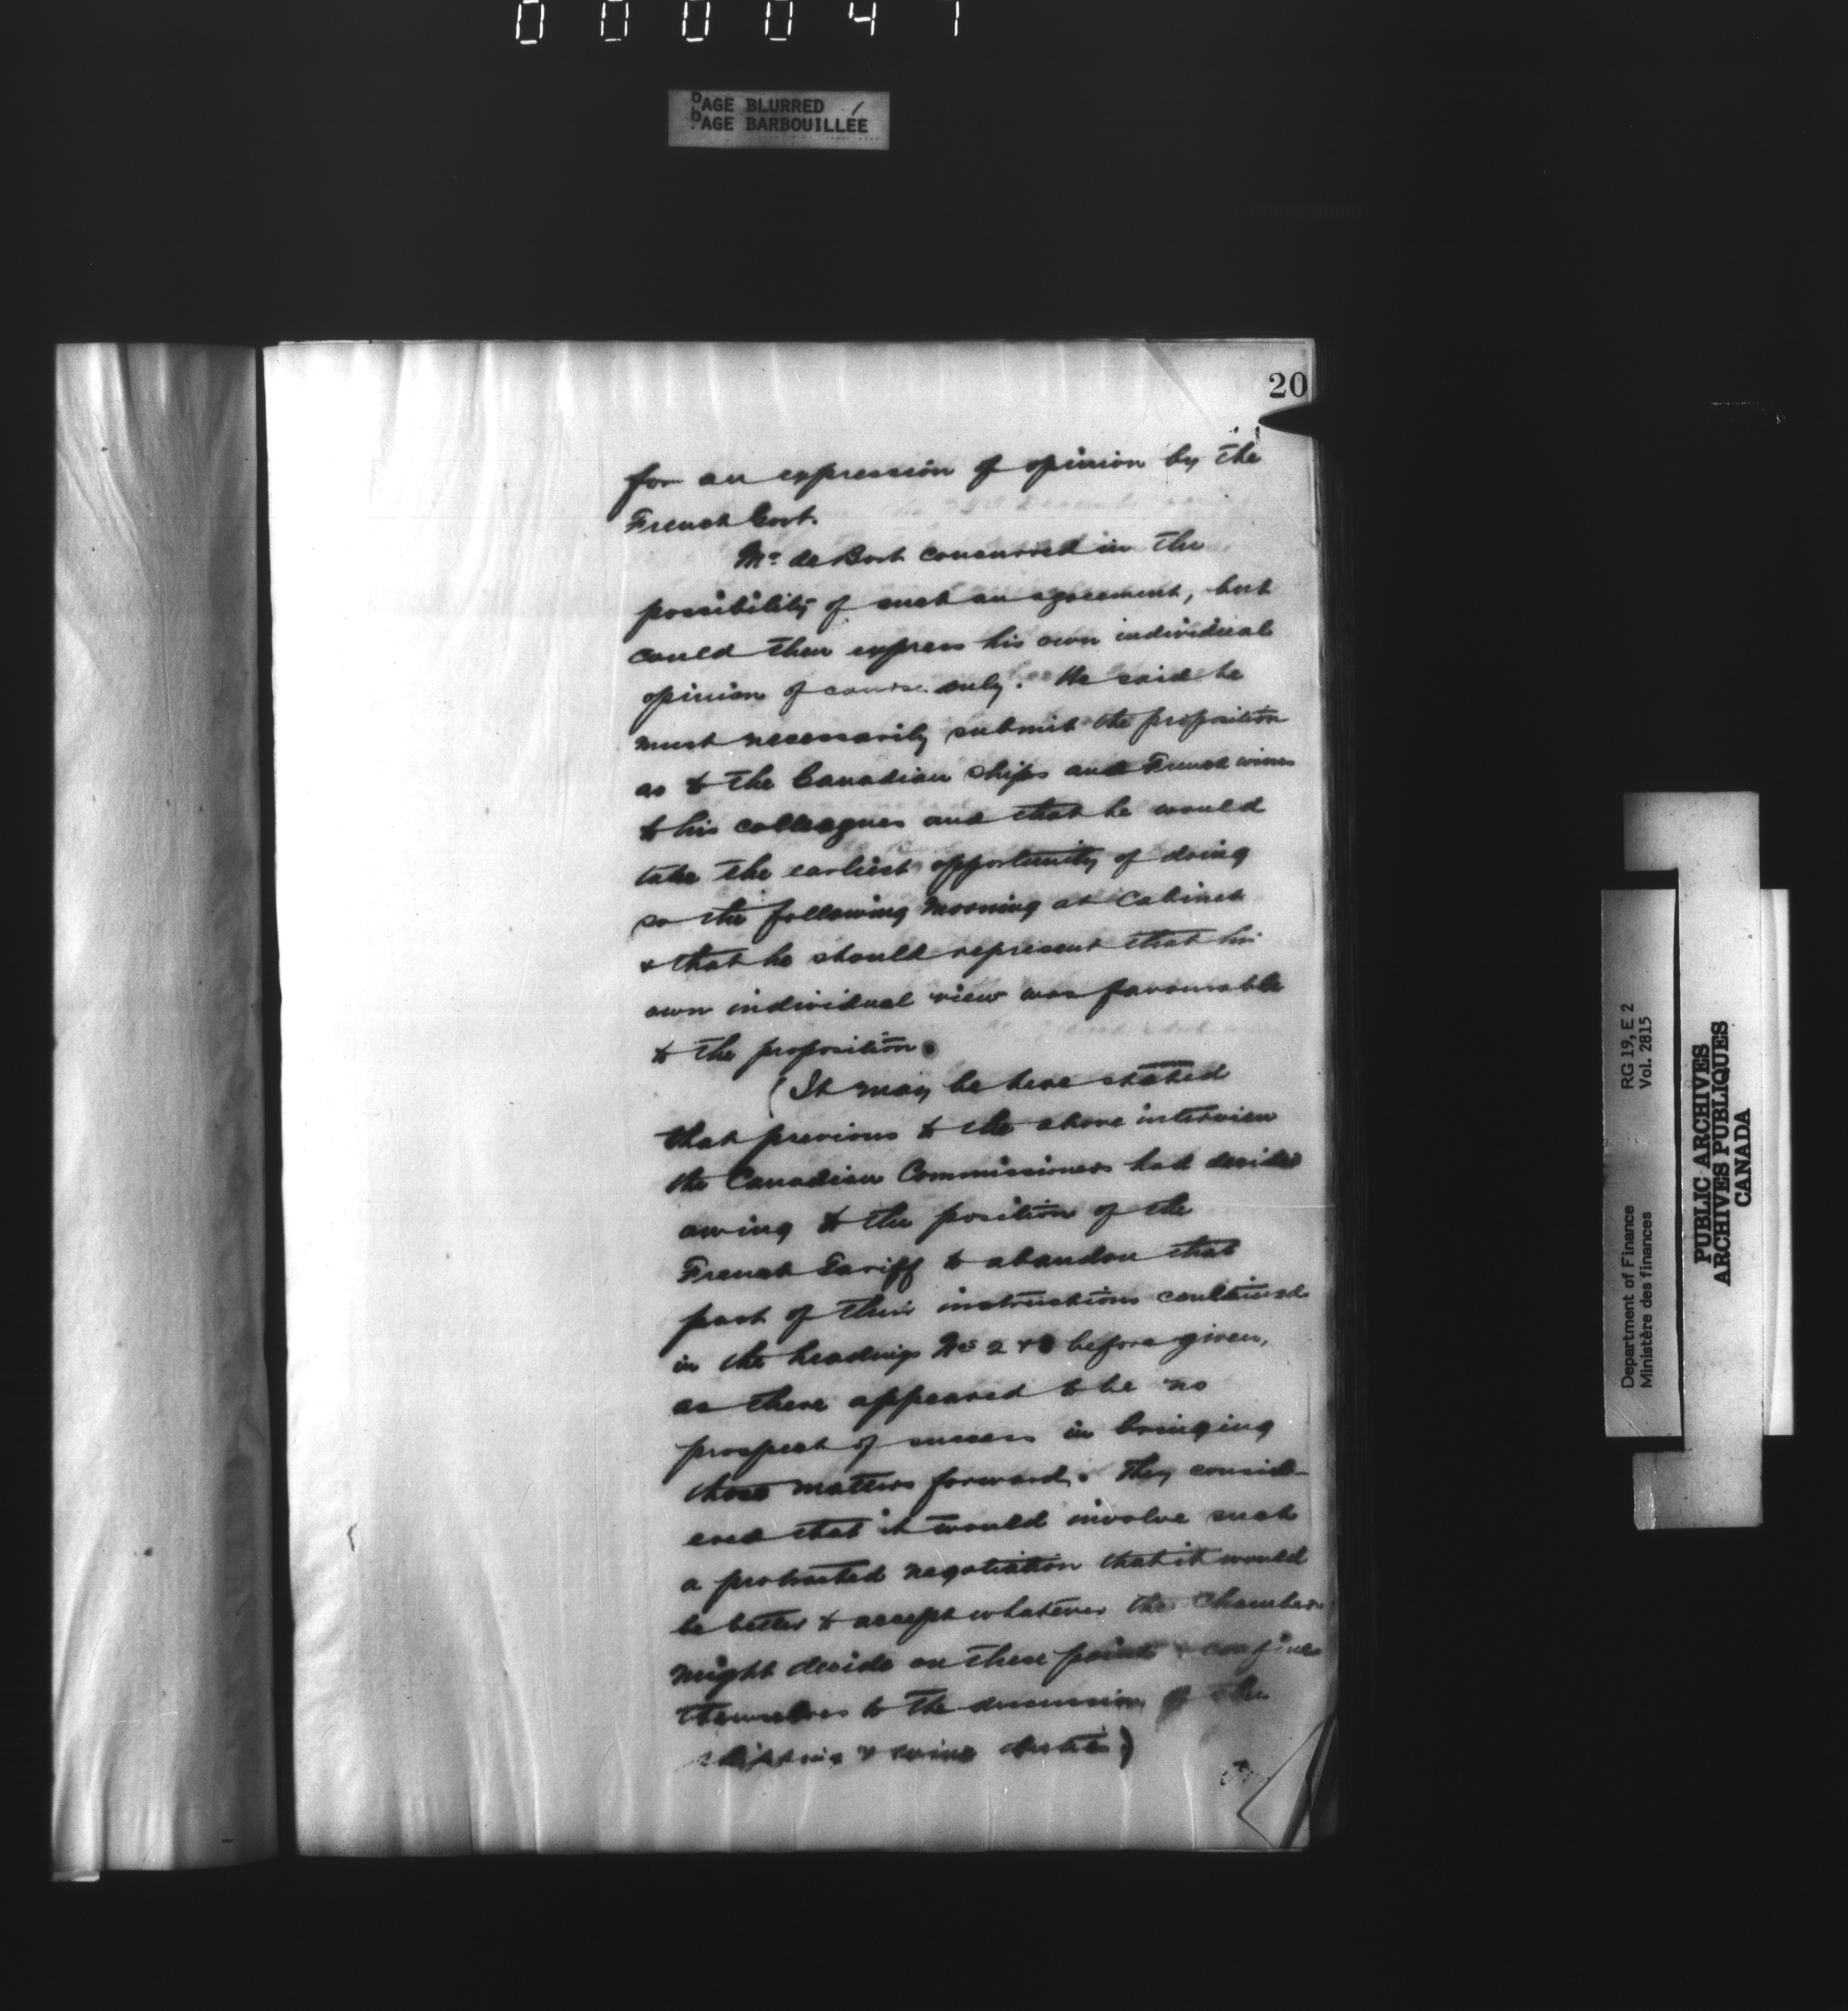 000047
PAGE BLURRED
PAGE BARBOUILLÉE
20
for an expression of opinion by the
French Govt.
Mr. de Bort concurred in the
possibility of such an agreement, but
could then express his own individual
opinion of course only. He said he
must necessarily submit the proposition
as to the Canadian ships and French wines
to his colleagues and that he would
take the earliest opportunity of doing
so the following morning at Cabinet
& that he should represent that his
own individual view was favourable
to the proposition.
(It may be here stated
that previous to the above interview
the Canadian Commissioners had decided
owing to the position of the
French Tariff to abandon that
part of their instructions contained
in the headings Nos 2 & before given,
as there appeared to be no
prospect of success in bringing
those matters forward. They consid-
ered that it would involve such
a protracted negotiation that it would
be better to accept whatever the Chambers
might decide on these points & confine
themselves to the discussion of the
shipping & wine duties.)
Department of Finance RG 19, E 2
Ministère des finances Vol. 2815
PUBLIC ARCHIVES
ARCHIVES PUBLIQUES
CANADA